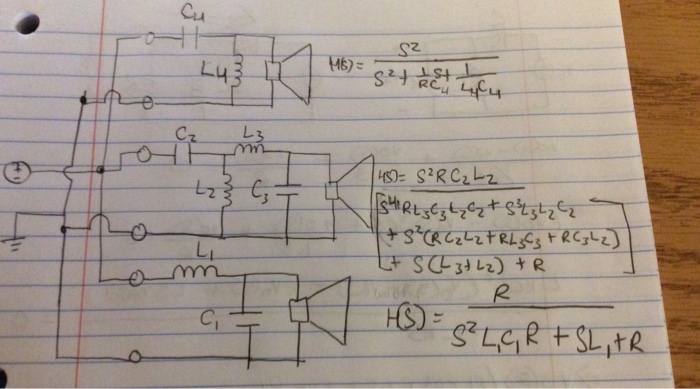 C4
L4
H(s)= S² / S² + 1/RC4 S + 1/L4C4
+
-
C2 L3
L2 C3
H(s)= S²RC2L2
S⁴RL3C3L2C2 + S³L3L2C2
+ S²(RC2L2+RL3C3+RC3L2)
+ S(L3+L2) + R
L1
C1
H(S) = R / S²L1C1R + SL1+R